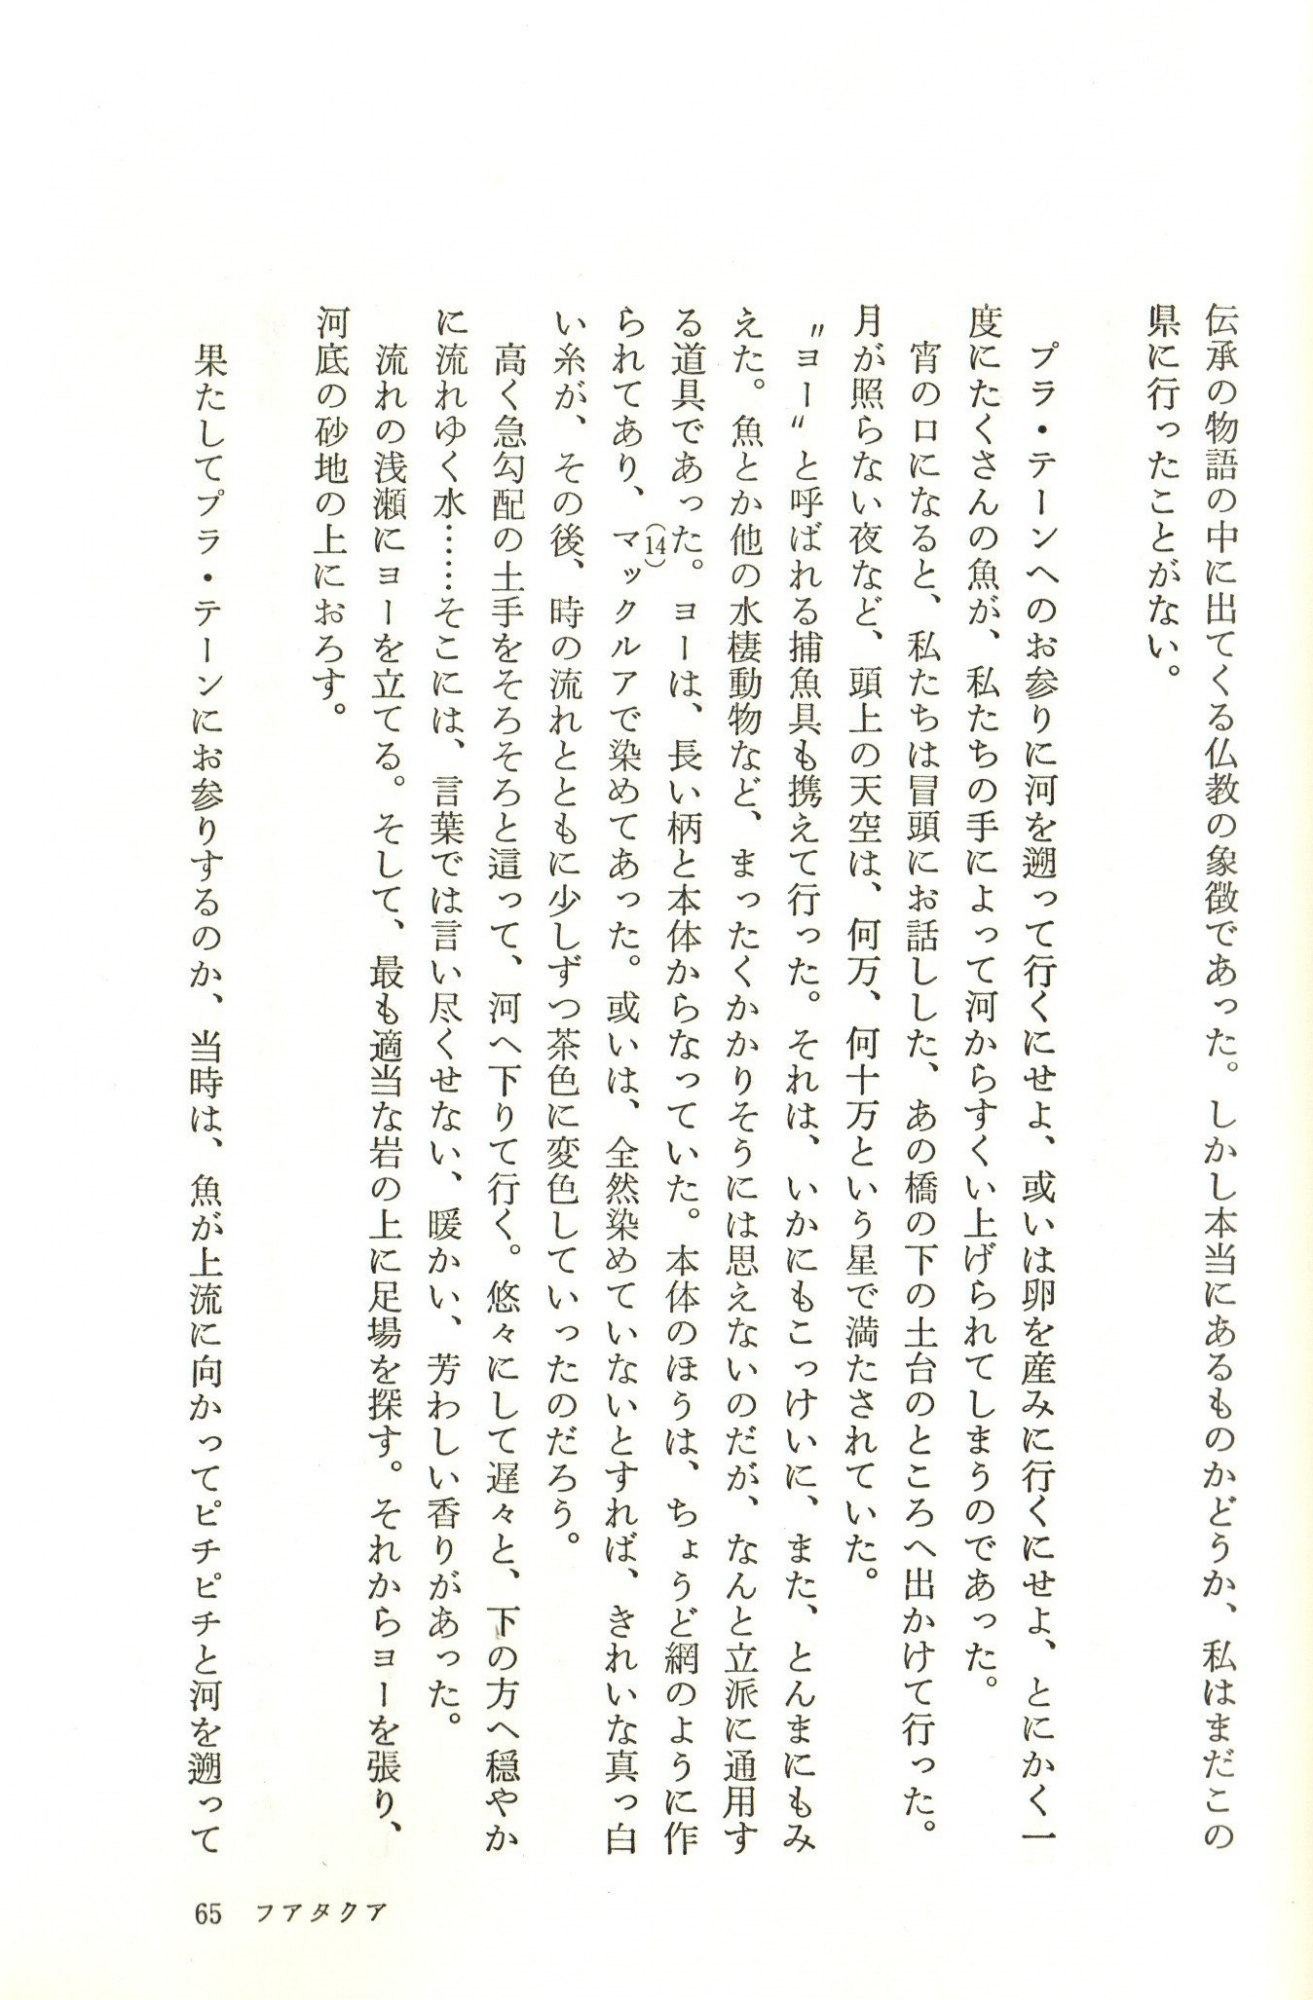 伝承の物語の中に出てくる仏教の象徴であった。しかし本当にあるものかどうか、私はまだこの
県に行ったことがない。
プラ・テーンへのお参りに河を遡って行くにせよ、或いは卵を産みに行くにせよ、とにかく一
度にたくさんの魚が、私たちの手によって河からすくい上げられてしまうのであった。
宵の口になると、私たちは冒頭にお話しした、あの橋の下の土台のところへ出かけて行った。
月が照らない夜など、頭上の天空は、何万、何十万という星で満たされていた。
〃ヨー〃と呼ばれる捕魚具も携えて行った。それは、いかにもこっけいに、また、とんまにもみ
えた。魚とか他の水棲動物など、まったくかかりそうには思えないのだが、なんと立派に通用す
る道具であった。ヨーは、長い柄と本体からなっていた。本体のほうは、ちょうど網のように作
られてあり、マックルア(14)で染めてあった。或いは、全然染めていないとすれば、きれいな真っ白
い糸が、その後、時の流れとともに少しずつ茶色に変色していったのだろう。
高く急勾配の土手をそろそろと這って、河へ下りて行く。悠々にして遅々と、下の方へ穏やか
に流れゆく水……そこには、言葉では言い尽くせない、暖かい、芳わしい香りがあった。
流れの浅瀬にヨーを立てる。そして、最も適当な岩の上に足場を探す。それからヨーを張り、
河底の砂地の上におろす。
果たしてプラ・テーンにお参りするのか、当時は、魚が上流に向かってピチピチと河を遡って
65 フアタクア